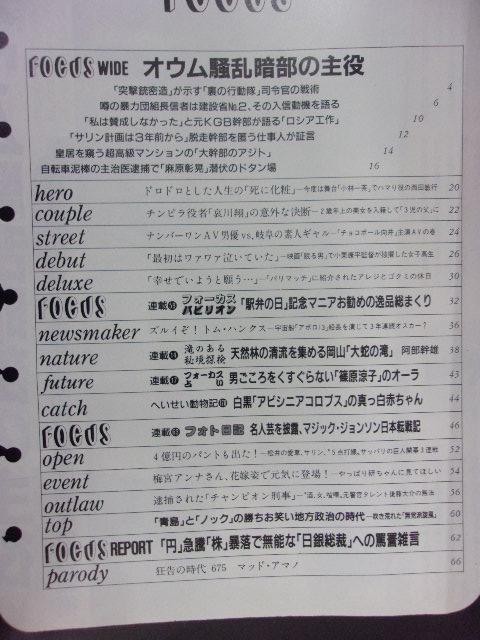 FOCUS
FOCUS WIDE オウム騒乱暗部の主役
「突撃銃密造」が示す「裏の行動隊」司令官の戦術 4
噂の暴力団組長信者は建設省№2、その入信動機を語る 6
「私は賛成しなかった」と元KGB幹部が語る「ロシア工作」 10
「サリン計画は3年前から」脱走幹部を匿う仕事人が証言 12
皇居を窺う超高級マンションの「大幹部のアジト」 14
自転車泥棒の主治医逮捕で「麻原彰晃」潜伏のドタン場 16
hero ドロドロとした人生の「死に化粧」―今度は舞台「小林一茶」でハマリ役の西田敏行 20
couple チンピラ役者「哀川翔」の意外な決断―2歳年上の美女を入籍して「3児の父」に 22
street ナンバーワンAV男優vs.岐阜の素人ギャル―「チョコボール向井」主演AVの巻 24
debut 「最初はワァワァ泣いていた」―映画「眠る男」で小栗康平監督が抜擢した女子高生 26
deluxe 「幸せでいようと願う…」―「パリマッチ」に紹介されたアレジとゴクミの休日 30
FOCUS 連載 フォーカスパビリオン 「駅弁の日」記念マニアお勧めの逸品総まくり 32
newsmaker ズルイぞ！トム・ハンクス―宇宙船「アポロ13」船長を演じて3年連続オスカー？ 36
nature 連載 滝のある秘境探検 天然林の清流を集める岡山「大蛇の滝」 阿部幹雄 38
future 連載 フォーカス占い 男ごころをくすぐらない「篠原涼子」のオーラ 43
catch へいせい動物記 白黒「アビシニアコロブス」の真っ白赤ちゃん 44
FOCUS 連載 フォト日記 名人芸を披露、マジック・ジョンソン日本転戦記 46
open 4億円のバントも出た！―松井の愛車、サリン、"5点打線、サッパリの巨人開幕3連戦 52
event 梅宮アンナさん、花嫁姿で元気に登場！―やっぱり研ちゃんに見てほしい 54
outlaw 逮捕された「チャンピオン刑事」―"酒、女、喧嘩、元警官タレント後藤大介の無法 56
top 「青島」と「ノック」の勝ちお笑い地方政治の時代―吹き荒れた"無党派旋風" 60
FOCUS REPORT 「円」急騰「株」暴落で無能な「日銀総裁」への罵詈雑言 62
parody 狂告の時代 675 マッド・アマノ 66